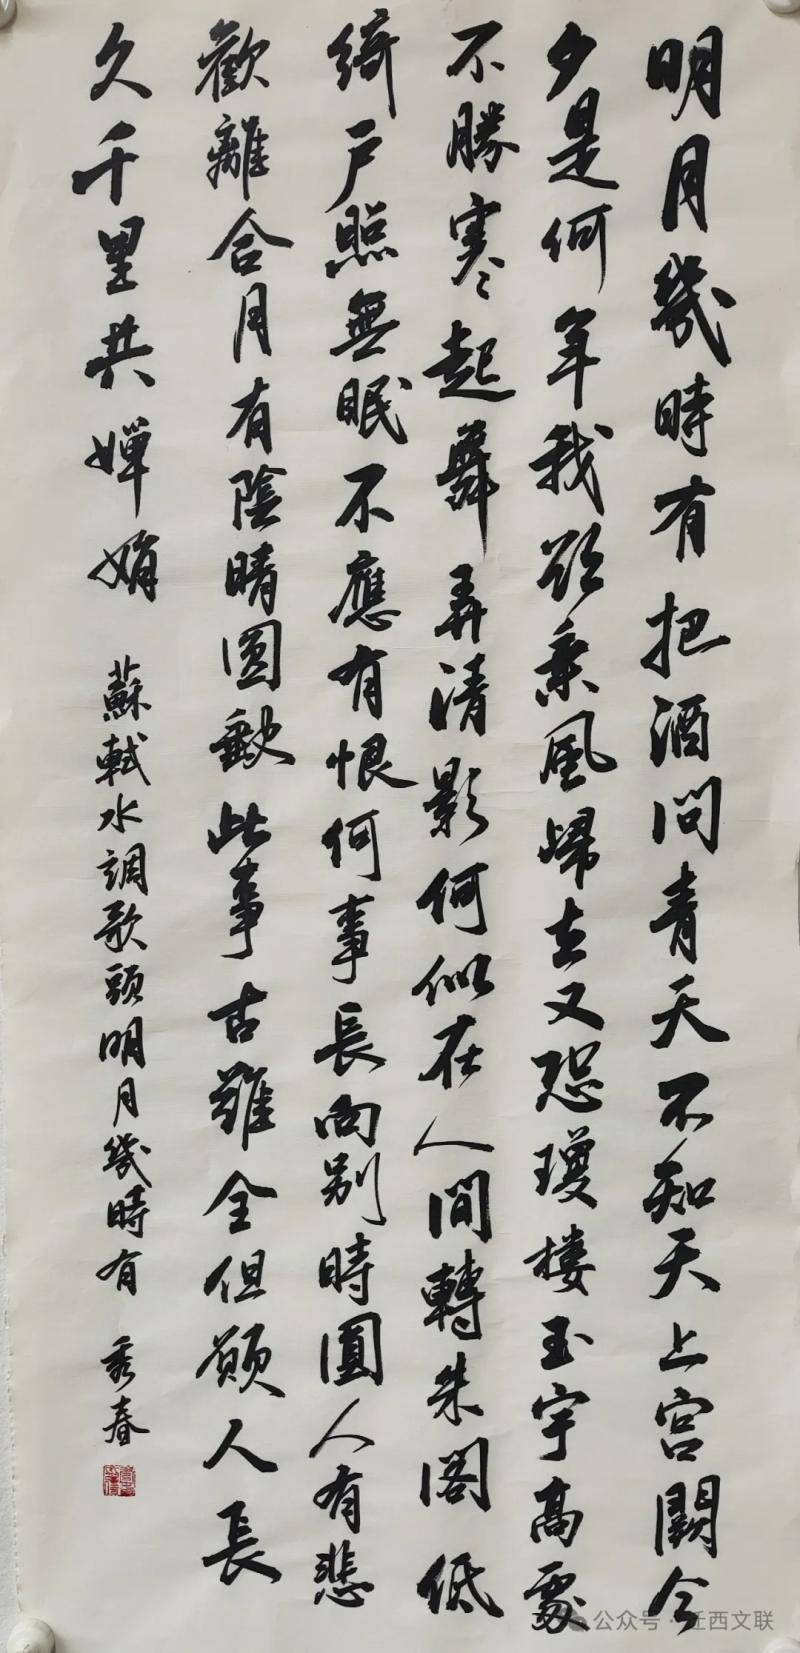 明月幾時有把酒問青天不知天上宮闕今
夕是何年我欲乘風歸去又恐瓊樓玉宇高處
不勝寒起舞弄清影何似在人間轉朱閣低
綺戶照無眠不應有恨何事長向別時圓人有悲
歡離合月有陰晴圆缺此事古難全但願人長
久千里共嬋娟
蘇軾水調歌頭明月幾時有 秀春
公众号·迁西文联